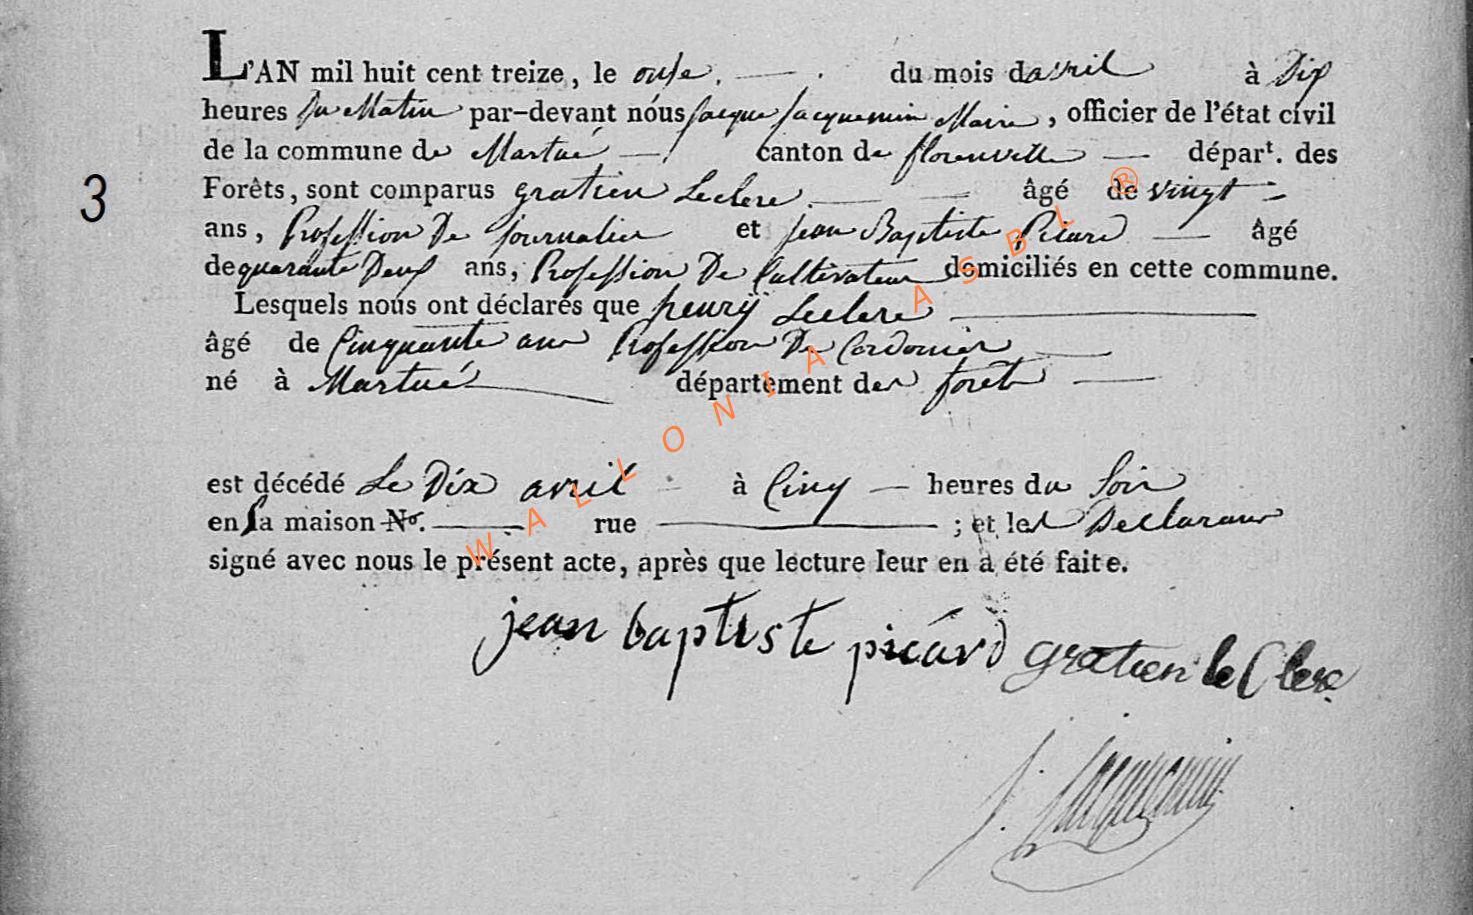 L'AN mil huit cent treize, le onse. du mois davril à Dix
heures Du Matin par-devant nóus jacque jacquemin Maire, officier de l'état civil
de la commune de Martué canton de florenville départ. des
3 Forêts, sont comparus gratien Leclere. âgé de vingt
ans, Profession De journalier et jean Baptiste Picard âgé
de quarante Deux ans, Profession De Cultivateur domiciliés en cette commune.
Lesquels nous ont déclarés que henry Leclere
âgé de Cinquante ans Profession De Cordonier
né à Martué département des forêts
est décédé Le Dix avril à Cinq heures du Soir
en sa maison No. rue ; et les Declarans
signé avec nous le présent acte, après que lecture leur en a été faite.
jean baptiste picard gratien le Clere
j. jacquemin
WALLONIA ASBL ®